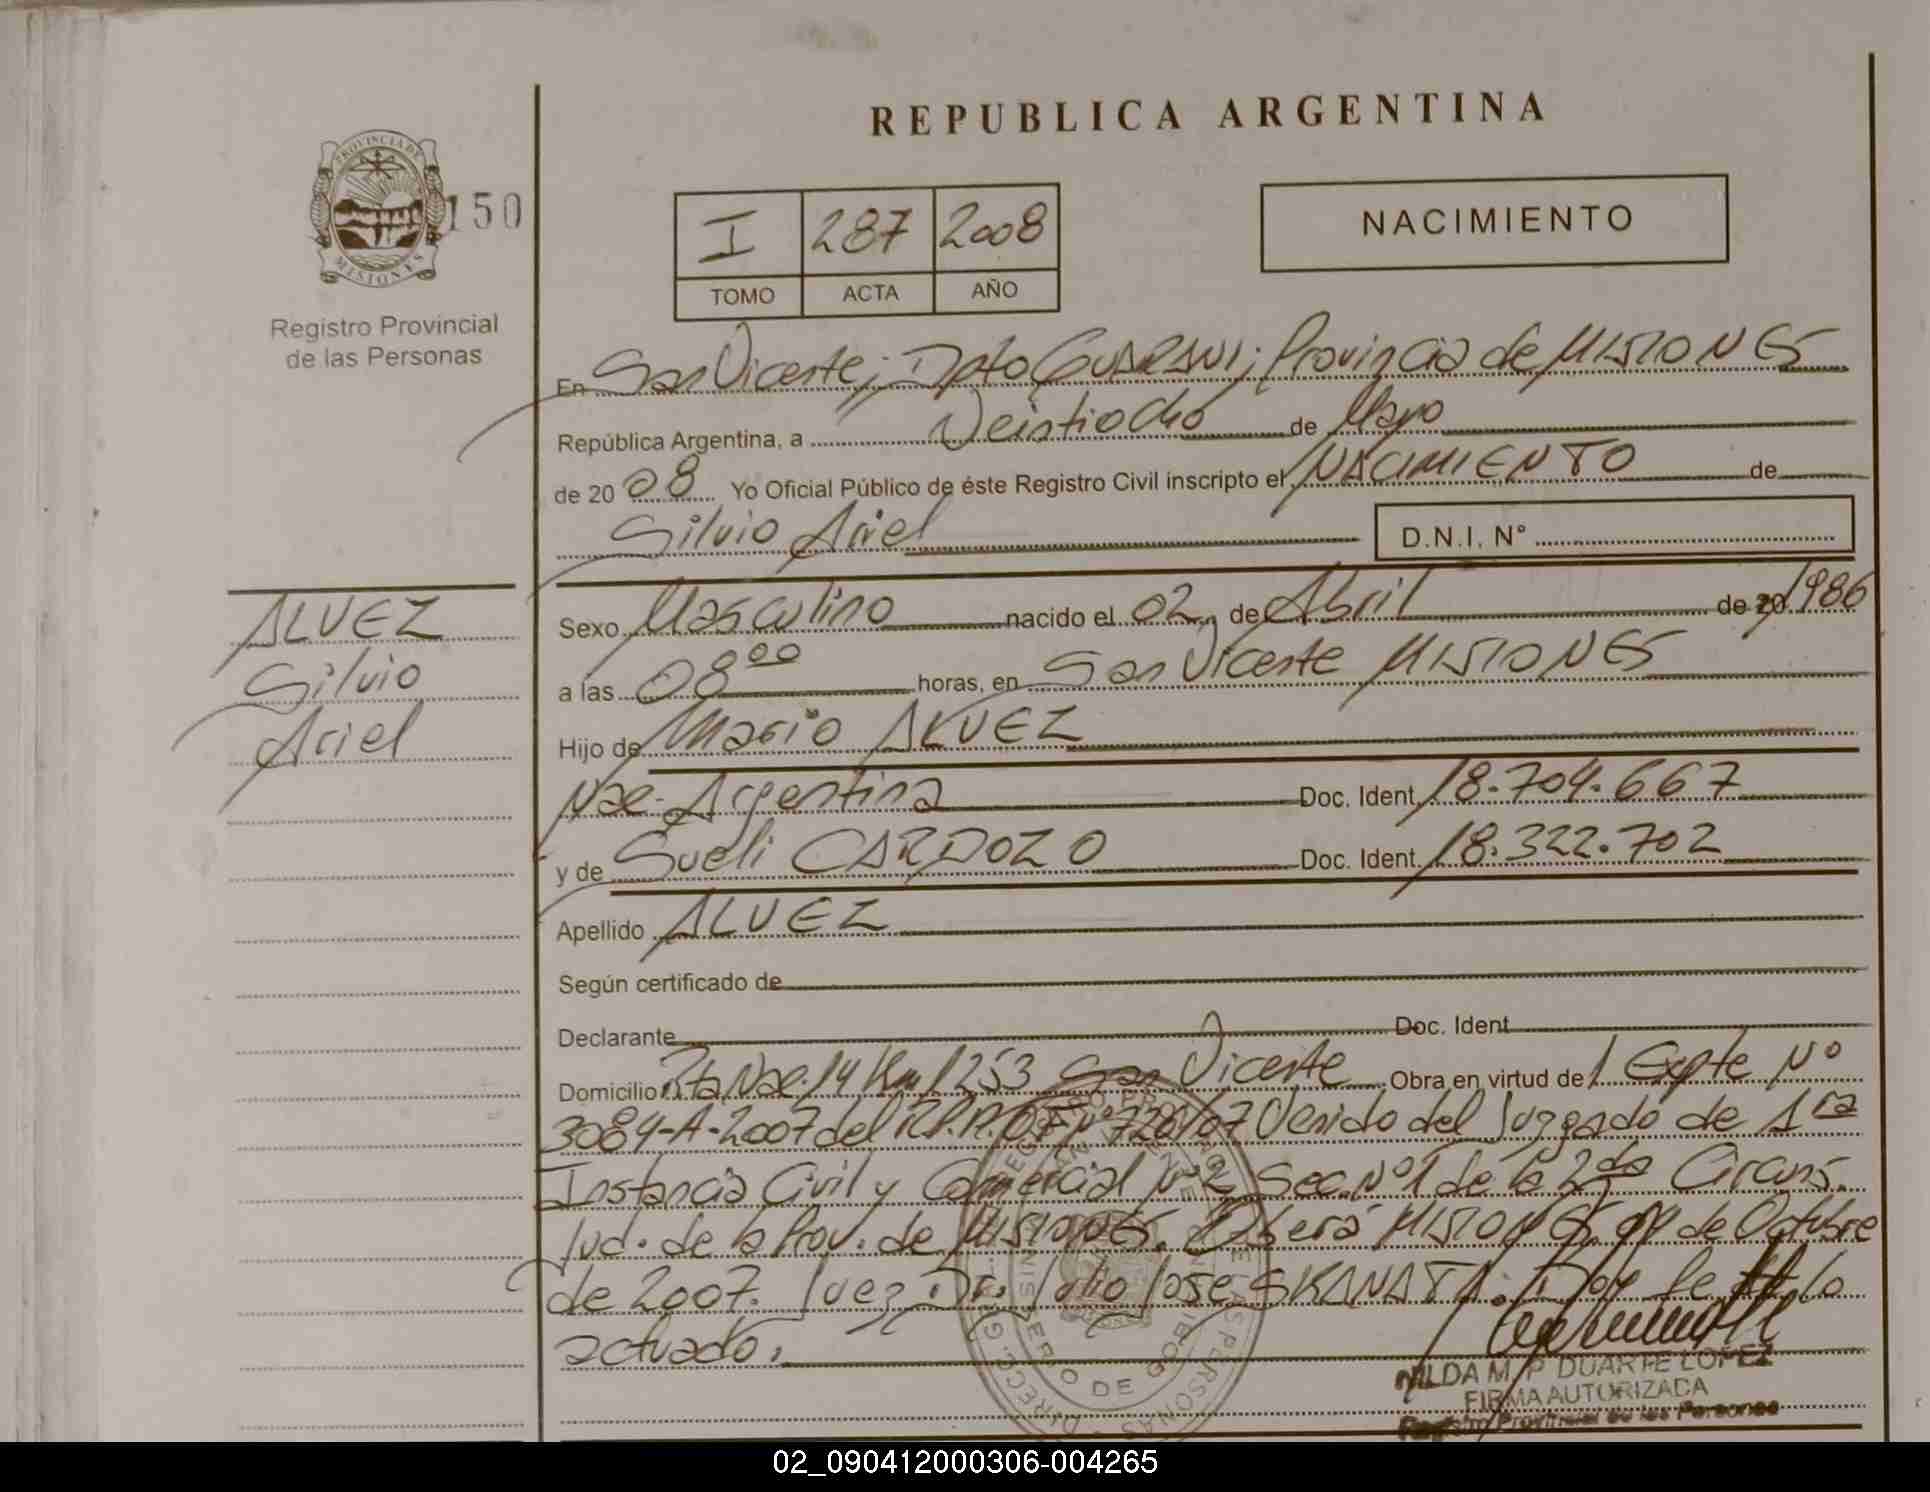 REPUBLICA ARGENTINA
PROVINCIA DE
MISIONES
150
Registro Provincial
de las Personas
I 287 2008
TOMO ACTA AÑO
NACIMIENTO
En San Vicente; Dpto GUARANI; Provincia de MISIONES
República Argentina, a Veintiocho de Mayo
de 20 08 Yo Oficial Público de éste Registro Civil inscripto el NACIMIENTO de
Silvio Ariel
D.N.I. Nº
ALVEZ
Silvio
Ariel
Sexo Masculino nacido el 02 de Abril de 20 1986
a las 08 00 horas, en San Vicente MISIONES
Hijo de Mario ALVEZ
Nac. Argentina Doc. Ident. 18.704.667
y de Sueli CARDOZO Doc. Ident. 18.322.702
Apellido ALVEZ
Según certificado de
Declarante Doc. Ident
Domicilio Rta Nac. 14 Km 1253 San Vicente Obra en virtud de 1 Expte Nº
3084-A-2007 del R.P.P. OF Nº 728/07 Venido del Juzgado de 1ra
Instancia Civil y Comercial Nº 2 Sec. Nº 1 de la 2da Circuns.
Jud. de la Prov. de MISIONES. Oberá MISIONES, de Octubre
de 2007. Juez Dr. Julio Jose SKANATA. Doy fe lo
actuado.
NILDA M. P DUARTE LOPEZ
FIRMA AUTORIZADA
Registro Provincial de las Personas
02_090412000306-004265